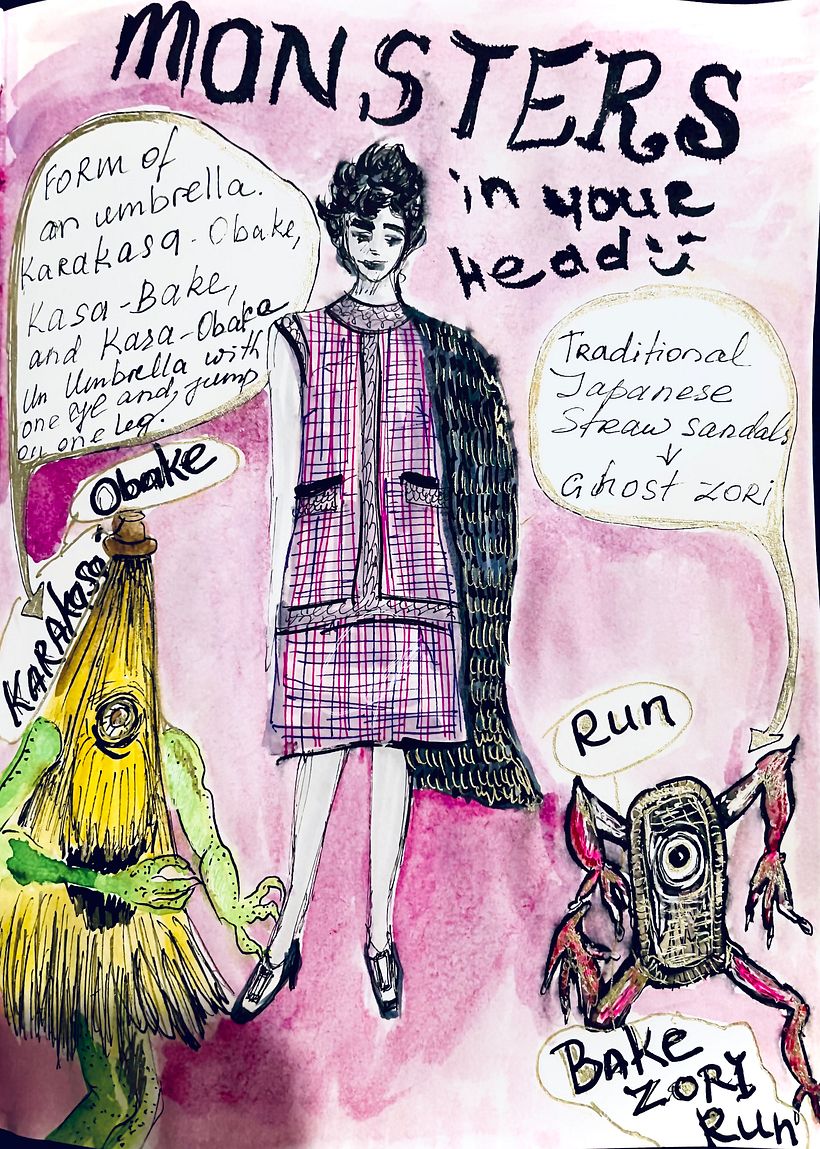 MONSTERS
in your
head
FORM of
an umbrella.
Karakasa-Obake,
Kasa-Bake,
and Kasa-Obake
Un Umbrella with
one eye and jump
on one Leg.
Obake
KARAKASA
Traditional
Japanese
Straw sandals
↓
Ghost ZORI
Run
BAKE
ZORI
Run